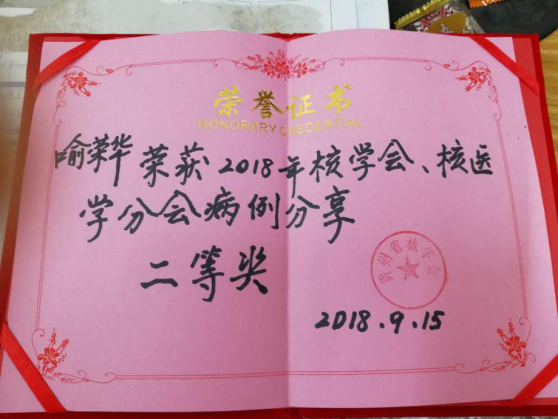 荣誉证书
HONORARY CREDENTIAL
喻荣华 荣获2018年核学会、核医
学分会病例分享
二等奖
贵州省核学会
2018.9.15